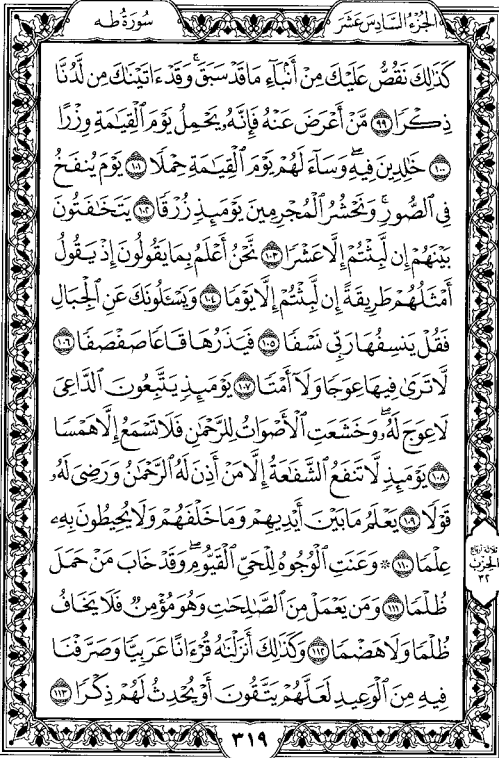 سُورَةُ طه
الجُزْءُ السَّادِسَ عَشَرَ
كَذَٰلِكَ نَقُصُّ عَلَيْكَ مِنْ أَنۢبَآءِ مَا قَدْ سَبَقَ ۚ وَقَدْ ءَاتَيْنَٰكَ مِن لَّدُنَّا
ذِكْرًا ٩٩ مَّنْ أَعْرَضَ عَنْهُ فَإِنَّهُۥ يَحْمِلُ يَوْمَ ٱلْقِيَٰمَةِ وِزْرًا
١٠٠ خَٰلِدِينَ فِيهِ ۖ وَسَآءَ لَهُمْ يَوْمَ ٱلْقِيَٰمَةِ حِمْلًا ١٠١ يَوْمَ يُنفَخُ
فِى ٱلصُّورِ ۚ وَنَحْشُرُ ٱلْمُجْرِمِينَ يَوْمَئِذٍ زُرْقًا ١٠٢ يَتَخَٰفَتُونَ
بَيْنَهُمْ إِن لَّبِثْتُمْ إِلَّا عَشْرًا ١٠٣ نَّحْنُ أَعْلَمُ بِمَا يَقُولُونَ إِذْ يَقُولُ
أَمْثَلُهُمْ طَرِيقَةً إِن لَّبِثْتُمْ إِلَّا يَوْمًا ١٠٤ وَيَسْـَٔلُونَكَ عَنِ ٱلْجِبَالِ
فَقُلْ يَنسِفُهَا رَبِّى نَسْفًا ١٠٥ فَيَذَرُهَا قَاعًا صَفْصَفًا ١٠٦
لَّا تَرَىٰ فِيهَا عِوَجًا وَلَآ أَمْتًا ١٠٧ يَوْمَئِذٍ يَتَّبِعُونَ ٱلدَّاعِىَ
لَا عِوَجَ لَهُۥ ۖ وَخَشَعَتِ ٱلْأَصْوَاتُ لِلرَّحْمَٰنِ فَلَا تَسْمَعُ إِلَّا هَمْسًا
١٠٨ يَوْمَئِذٍ لَّا تَنفَعُ ٱلشَّفَٰعَةُ إِلَّا مَنْ أَذِنَ لَهُ ٱلرَّحْمَٰنُ وَرَضِىَ لَهُۥ
قَوْلًا ١٠٩ يَعْلَمُ مَا بَيْنَ أَيْدِيهِمْ وَمَا خَلْفَهُمْ وَلَا يُحِيطُونَ بِهِۦ
عِلْمًا ١١٠ ۞ وَعَنَتِ ٱلْوُجُوهُ لِلْحَىِّ ٱلْقَيُّومِ ۖ وَقَدْ خَابَ مَنْ حَمَلَ
ظُلْمًا ١١١ وَمَن يَعْمَلْ مِنَ ٱلصَّٰلِحَٰتِ وَهُوَ مُؤْمِنٌ فَلَا يَخَافُ
ظُلْمًا وَلَا هَضْمًا ١١٢ وَكَذَٰلِكَ أَنزَلْنَٰهُ قُرْءَانًا عَرَبِيًّا وَصَرَّفْنَا
فِيهِ مِنَ ٱلْوَعِيدِ لَعَلَّهُمْ يَتَّقُونَ أَوْ يُحْدِثُ لَهُمْ ذِكْرًا ١١٣
ثلاثة أرباع
الحِزْبِ
٣٢
٣١٩